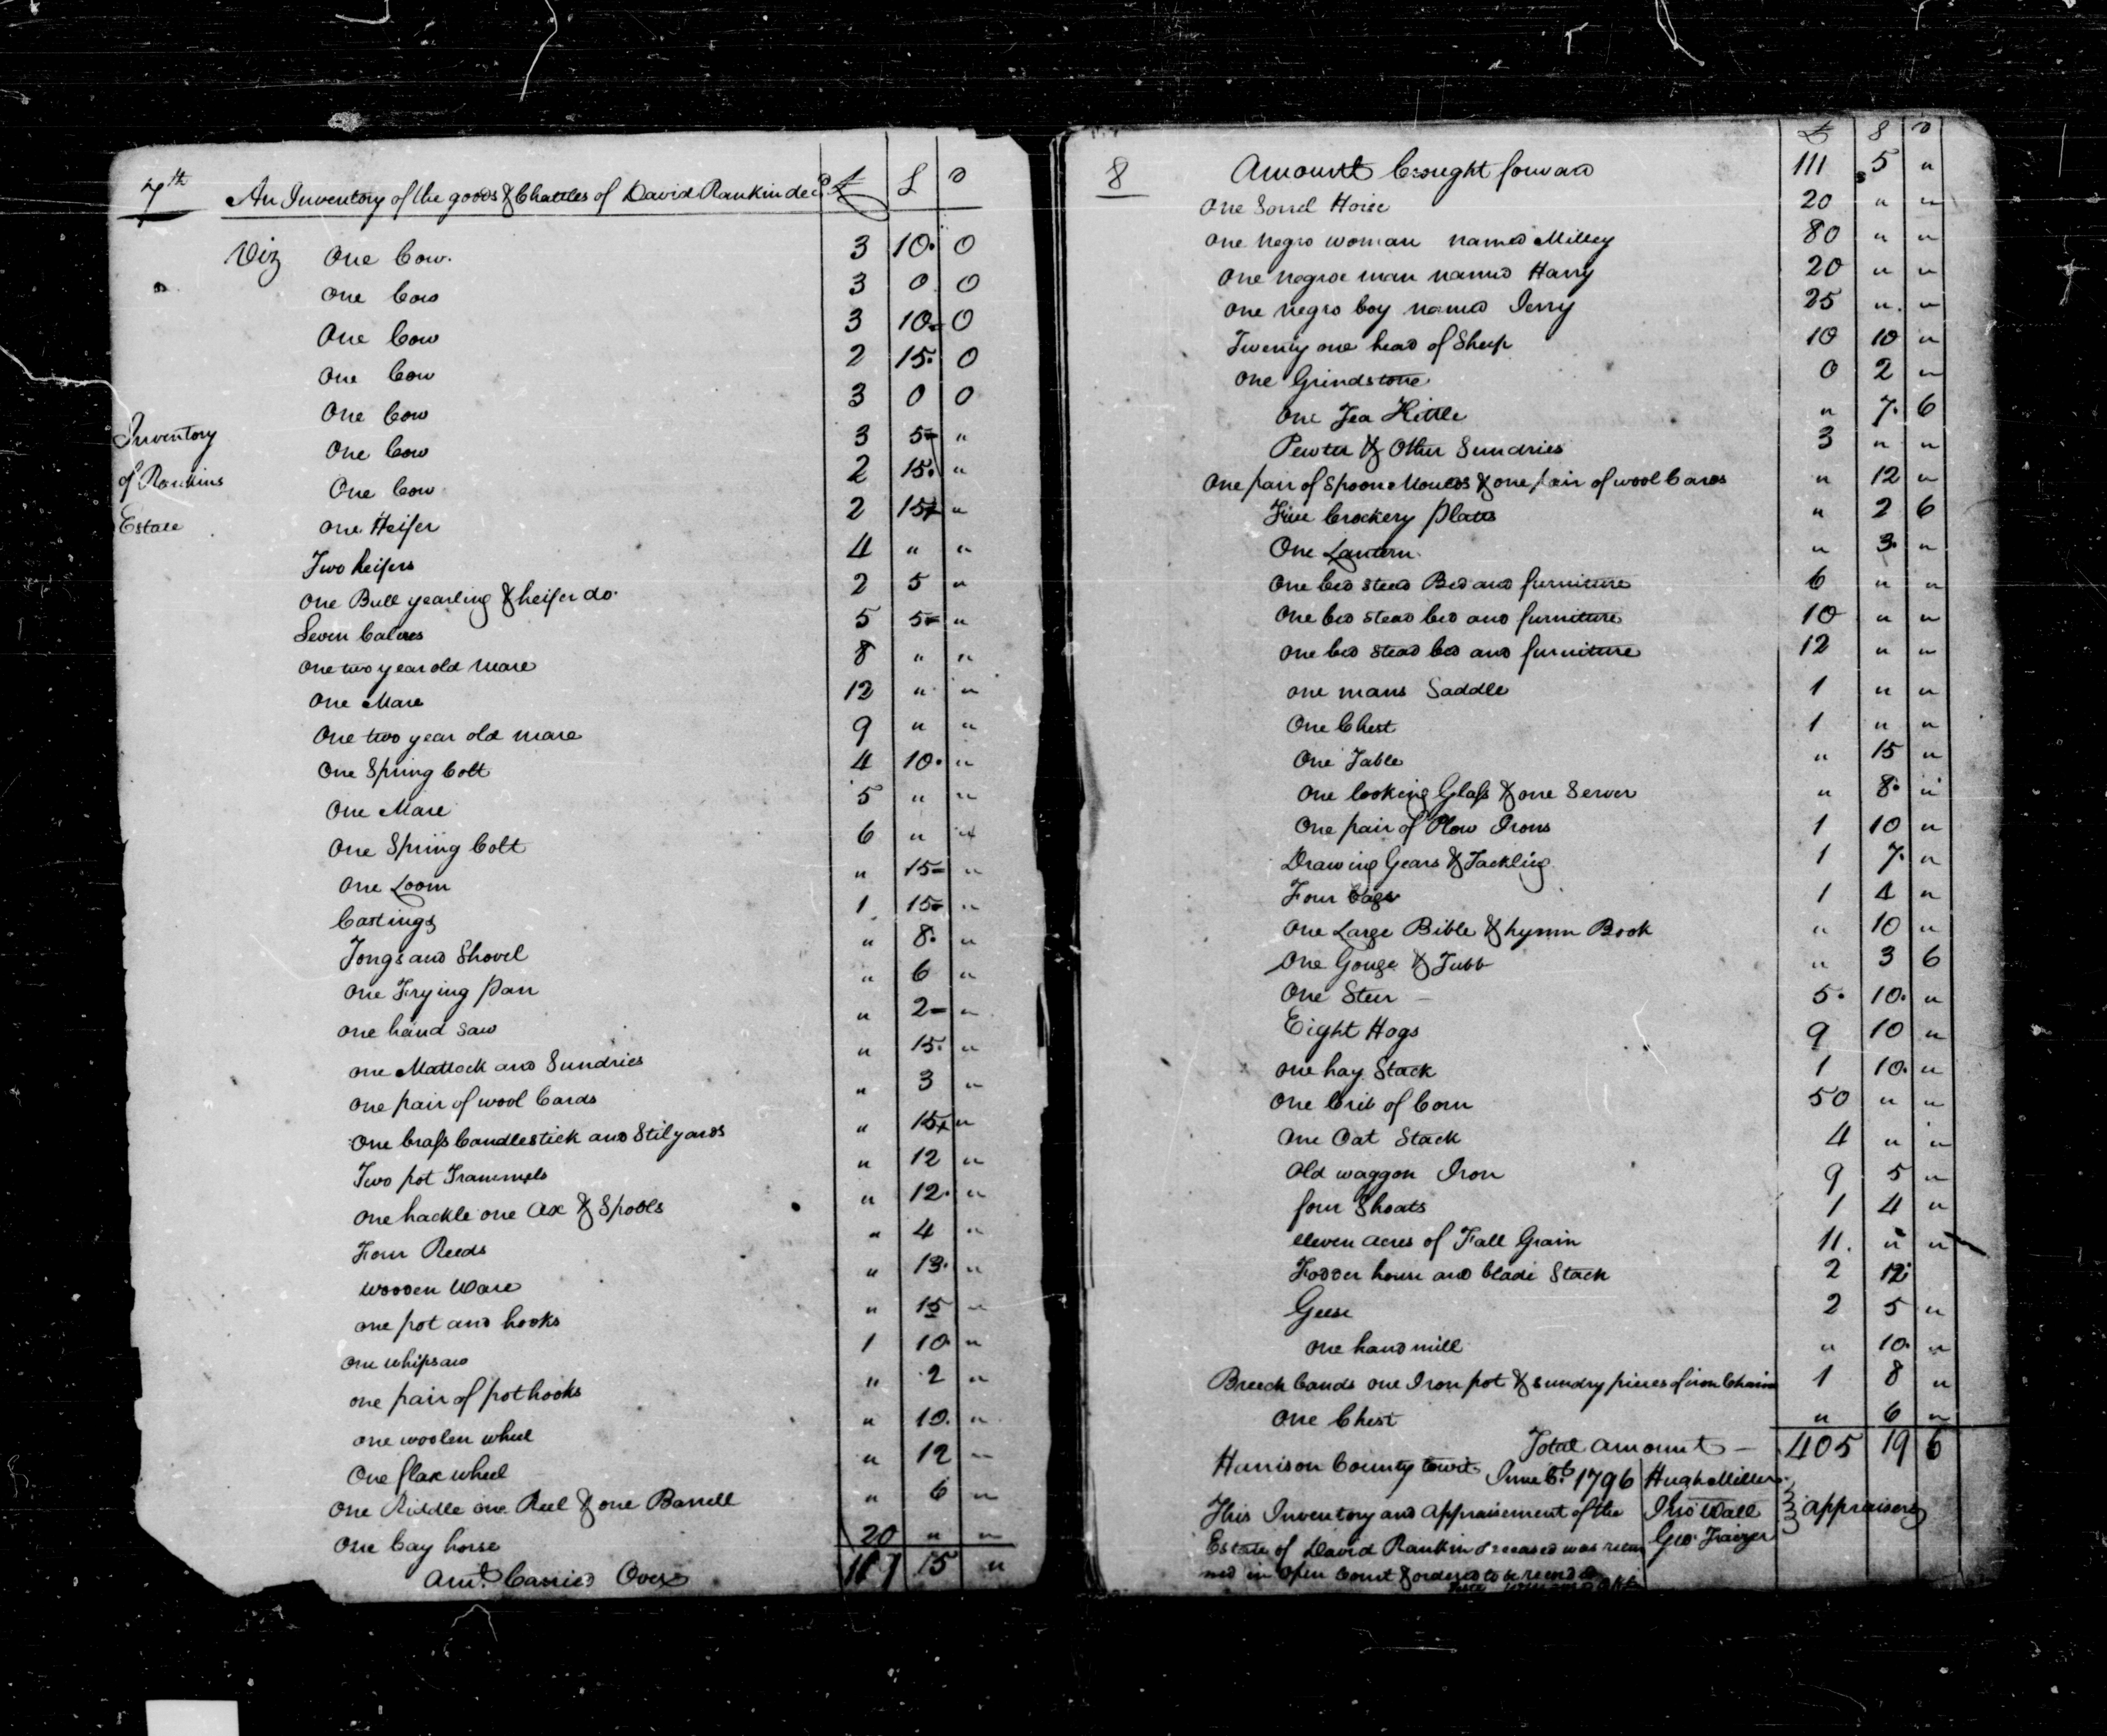 7th An Inventory of the goods & Chattles of David Rankin decd £ S D
Viz One Cow. 3 10 0
One Cow 3 0 0
One Cow 3 10 0
One Cow 2 15 0
One Cow 3 0 0
Inventory
of Rankins
Estate
One Cow 3 5 "
One Cow 2 15 "
One Heifer 2 15 "
Two heifers 4 " "
One Bull yearling & heifer do. 2 5 "
Seven Calves 5 5 "
One two year old mare 8 " "
One Mare 12 " "
One two year old mare 9 " "
One Spring Colt 4 10 "
One Mare 5 " "
One Spring Colt 6 " "
One Loom " 15 "
Castings 1 15 "
Tongs and Shovel " 8 "
One Frying pan " 6 "
One hand saw " 2 "
one Mattock and Sundries " 15 "
One pair of wool Cards " 3 "
One brass Candlestick and Stilyards " 15 "
Two pot Trammels " 12 "
One hackle one Ax & Spools " 12 "
Four Reeds " 4 "
Wooden Ware " 13 "
one pot and hooks " 15 "
One whipsaw 1 10 "
one pair of pothooks " 2 "
one woolen wheel " 10 "
One flax wheel " 12 "
One Riddle one Reel & one Barrell " 6 "
One bay horse 20 " "
Amt. Carried Over 15 "
8 £ S D
Amount brought forward 111 5 "
One Sorrel Horse 20 " "
One negro woman named Milley 80 " "
One negroe man named Harry 20 " "
One negro boy named Jerry 25 " "
Twenty one head of Sheep 10 10 "
One Grindstone 0 2 "
One Tea Kittle " 7 6
Pewter & Other Sundries 3 " "
One pair of Spoon Moulds & one pair of wool Cards " 12 "
Five Crockery plates " 2 6
One Lantern " 3 "
One bed stead Bed and furniture 6 " "
One bed stead bed and furniture 10 " "
One bed stead bed and furniture 12 " "
one mans Saddle 1 " "
One Chest 1 " "
One Table " 15 "
One looking Glass & one Server " 8 "
One pair of Plow Irons 1 10 "
Drawing Gears & Tackling 1 7 "
Four bags 1 4 "
One Large Bible & hymn Book " 10 "
One Gouge & Tubb " 3 6
One Steer 5 10 "
Eight Hogs 9 10 "
one hay Stack 1 10 "
One Crib of Corn 50 " "
One Oat Stack 4 " "
Old waggon Iron 9 5 "
four Shoats 1 4 "
eleven acres of Fall Grain 11 " "
Fodder house and blade Stack 2 12
Geese 2 5 "
One hand mill " 10 "
Breech bands one Iron pot & sundry pieces of iron Chain 1 8 "
One Chest " 6 "
Total amount 405 19 6
Harrison County towit June Ct. 1796 Hugh Miller
This Inventory and Appraisement of the Jno Wall appraisers
Estate of David Rankin deceased was retur Geo. Frazer
ned in Open Court & ordered to be recorded